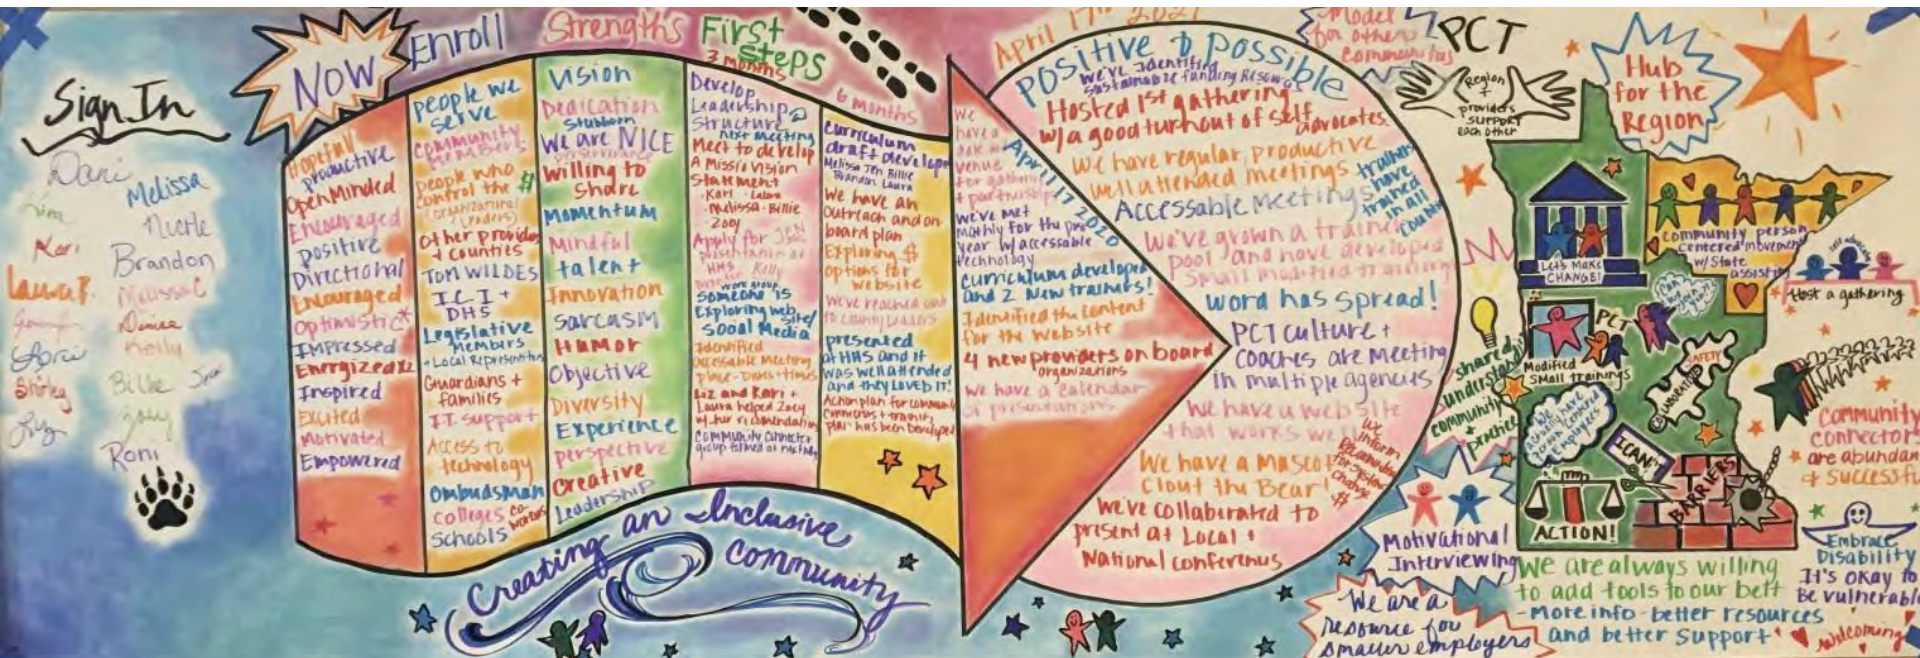 Sign In
Dani
Melissa
Kim
Nicole
Kari
Brandon
Laura P.
Melissa C
Denise
Lori
Kelly
Shirley
Billie
Jen
Liz
Zoey
Roni
NOW
Hopefull
productive
Open Minded
Encouraged
positive
Directional
Encouraged
Optimistic*
IMPRESSED
Energized x2
Inspired
Excited
Motivated
Empowered
Enroll
people we
serve
Community
Members
people who
control the $
(organizational
leaders)
other providers
+ counties
TOM WILDES
ICI +
DHS
Legislative
Members
+ Local Representatives
Guardians +
families
I.T. support
Access to
technology
Ombudsman
colleges co-workers
Schools
Strengths
Vision
Dedication
Stubborn
We are NICE
perseverance
Willing to
Share
Momentum
Mindful
talent
Innovation
Sarcasm
Humor
Objective
Diversity
Experience
perspective
Creative
Leadership
First
Steps
3 months
Develop
Leadership
Structure
next meeting
Meet to develop
A Missi & Vision
Statement
Karl - Laura
Melissa - Billie
Zoey
Apply for
presentation at
HHS
Kelly
work group
Someone is
Exploring web site/
Social Media
Identified
Accessable Meeting
place - Dates + times
Liz and Kari +
Laura helped Zoey
w/ her recomendations
Community Connector
group formed at meeting
6 months
Curriculum
draft developed
Melissa Jen Billie
Brandon Laura
We have an
Outreach and on
board plan
Exploring $
options for
website
We've reached out
to county Leaders
presented
at HHS and it
was well attended
and they LOVED it!
Action plan for community
Connectors + transit
plan has been developed
We
have a
venue
for gathering
+ partnership
we've met
mothly for the past
year w/ accessable
technology
curriculum developed
and 2 New trainers!
Identified the content
for the website
4 new providers on board
organizations
We have a calendar
of presentations
April 17 2020
April 17th 2021
positive & possible
We've Identified
sustainable funding Resources
Hosted 1st gathering
w/ a good turnout of self advocates
We have regular, productive
well attended meetings
Accessable Meetings
trainers
have
trained
in all
counties
We've grown a trainer
pool and have developed
small modified training
Word has spread!
PCT culture +
Coaches are Meeting
in multiple agencies
We have a website
that works well
We have a Mascot
Clout the Bear!
we
inform
Recommendations
for system
change
$
We've collaborated to
present at Local +
National conferences
Creating an Inclusive
community
Model
for other
communities
PCT
Region
+
providers
support
each other
Hub
for the
Region
LET'S MAKE
CHANGE!
Community person
centered movement
w/ State
assisting
self advocates
Host a gathering
PCT
Modified
Small trainings
shared
understanding
community
+
practice
SAFETY
COLLABORATION
We
actually have
person centered
employees
I CAN'T
BARRIERS
ACTION!
Community
connectors
are abundant
& successful
Motivational
Interviewing
We are a
resource for
smaller employers
We are always willing
to add tools to our belt
- More info - better resources
and better support
Embrace
Disability
It's okay to
Be vulnerable
welcoming